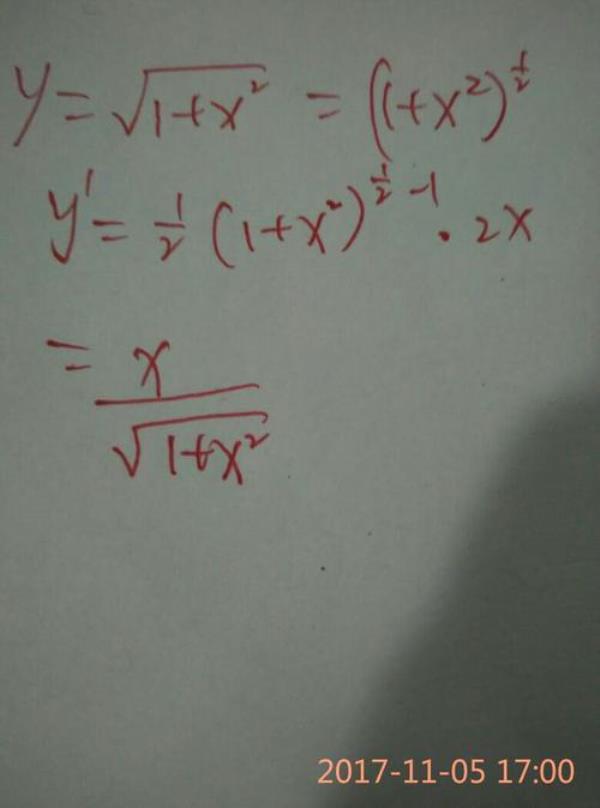 y = √(1+x²) = (1+x²)^(1/2)
y' = 1/2 (1+x²)^(1/2 - 1) · 2x
= x / √(1+x²)
2017-11-05 17:00